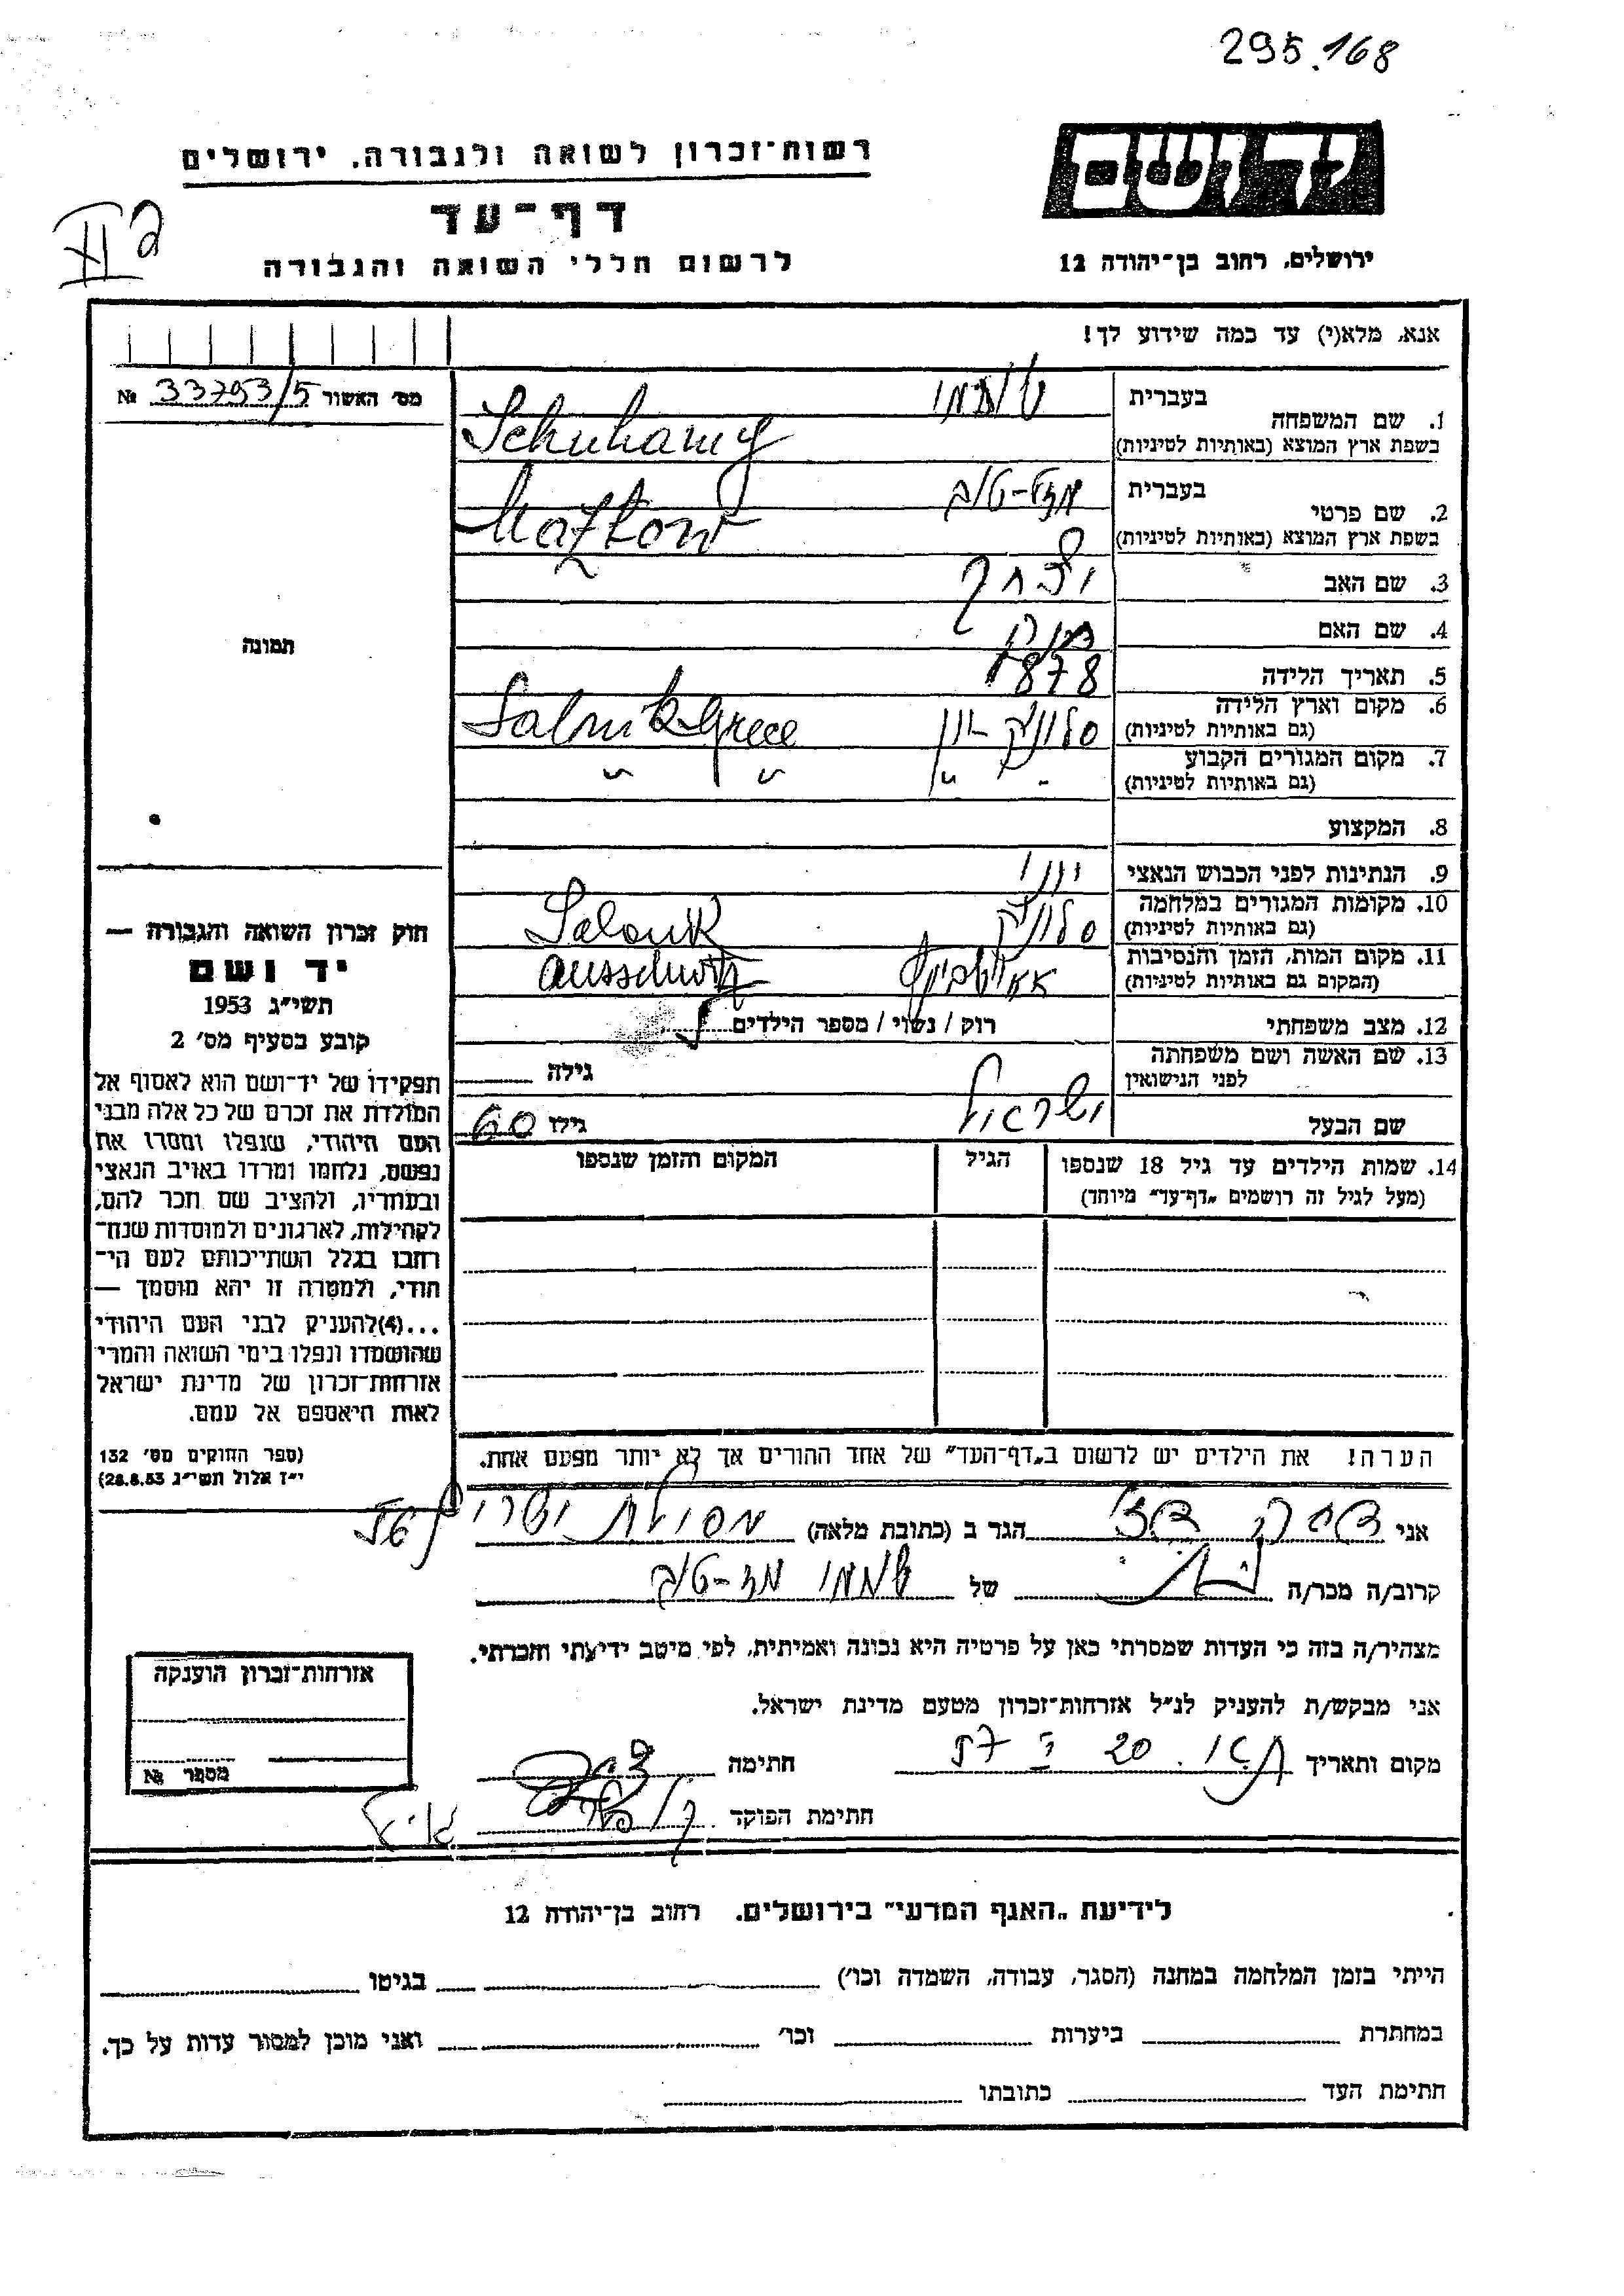 295.168
יד ושם
רשות-זכרון לשואה ולגבורה, ירושלים
דף-עד
לרשום חללי השואה והגבורה
ירושלים, רחוב בן-יהודה 12
אנא, מלא(י) עד כמה שידוע לך!
מס' האשור № 33793/5
תמונה
1. שם המשפחה
בעברית
בשפת ארץ המוצא (באותיות לטיניות)
Schuhamy
2. שם פרטי
בעברית מזל-טוב
בשפת ארץ המוצא (באותיות לטיניות)
Mazltow
3. שם האב יצחק
4. שם האם
5. תאריך הלידה 1878
6. מקום וארץ הלידה
(גם באותיות לטיניות)
סלוניק יון Salonik Grece
7. מקום המגורים הקבוע
(גם באותיות לטיניות)
8. המקצוע
9. הנתינות לפני הכבוש הנאצי יווני
10. מקומות המגורים במלחמה
(גם באותיות לטיניות)
סלוניק Salonik
11. מקום המות, הזמן והנסיבות
(המקום גם באותיות לטיניות)
Ausschwitz
12. מצב משפחתי רוק / נשוי / מספר הילדים 5
13. שם האשה ושם משפחתה
לפני הנישואין
גילה
שם הבעל ישראל גילו 60
14. שמות הילדים עד גיל 18 שנספו
(מעל לגיל זה רושמים „דף-עד" מיוחד)
הגיל
המקום והזמן שנספו
הערה! את הילדים יש לרשום ב„דף-העד" של אחד ההורים אך לא יותר מפעם אחת.
חוק זכרון השואה והגבורה —
יד ושם
תשי"ג 1953
קובע בסעיף מס' 2
תפקידו של יד-ושם הוא לאסוף אל
המולדת את זכרם של כל אלה מבני
העם היהודי, שנפלו ומסרו את
נפשם, נלחמו ומרדו באויב הנאצי
ובעוזריו, ולהציב שם וזכר להם,
לקהילות, לארגונים ולמוסדות שנח-
רבו בגלל השתייכותם לעם הי-
הודי, ולמטרה זו יהא מוסמך —
...(4)להעניק לבני העם היהודי
שהושמדו ונפלו בימי השואה והמרי
אזרחות-זכרון של מדינת ישראל
לאות היאספם אל עמם.
(ספר החוקים מס' 132
י"ז אלול תשי"ג 28.8.53)
אני הגר ב (כתובת מלאה)
קרוב/ה מכר/ה של מזל-טוב
מצהיר/ה בזה כי העדות שמסרתי כאן על פרטיה היא נכונה ואמיתית, לפי מיטב ידיעתי והכרתי.
אני מבקש/ת להעניק לנ"ל אזרחות-זכרון מטעם מדינת ישראל.
מקום ותאריך חתימה
חתימת הפוקד
אזרחות-זכרון הוענקה
מספר №
לידיעת „האגף המדעי" בירושלים, רחוב בן-יהודה 12
הייתי בזמן המלחמה במחנה (הסגר, עבודה, השמדה וכו') בגיטו
במחתרת ביערות וכו' ואני מוכן למסור עדות על כך.
חתימת העד כתובתו